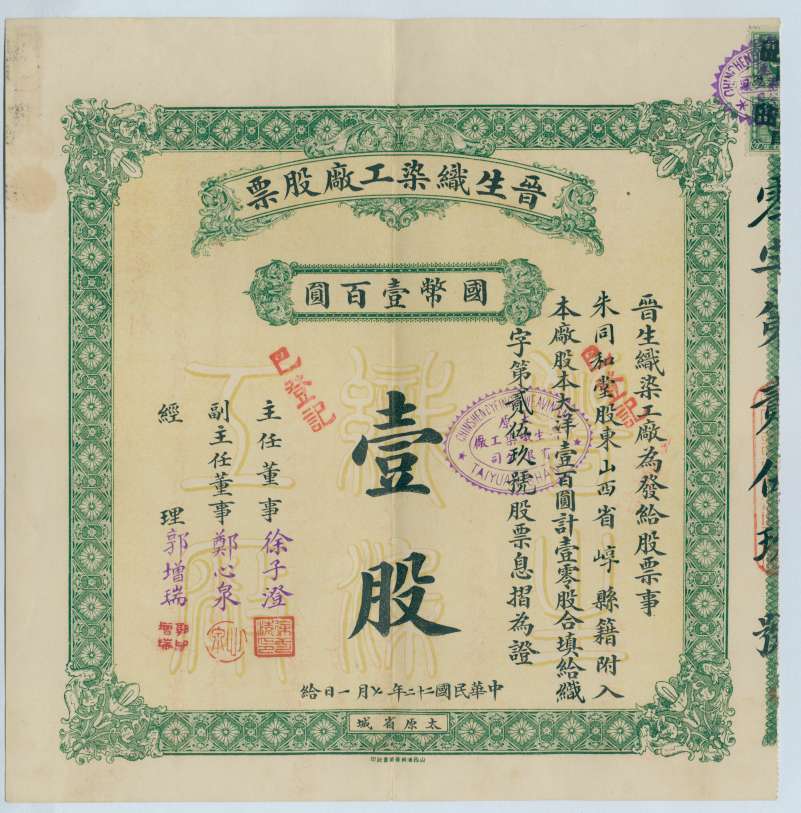 晉生織染工廠股票
國幣壹百圓
晉生織染工廠為發給股票事
朱同和堂股東山西省崞縣籍附入
本廠股本大洋壹百圓計壹零股合填給織
字第貳伍玖號股票息摺為證
已登記
已登記
壹股
主任董事徐子澄
副主任董事鄭心泉
經理郭增瑞
中華民國二十二年七月一日給
太原省城